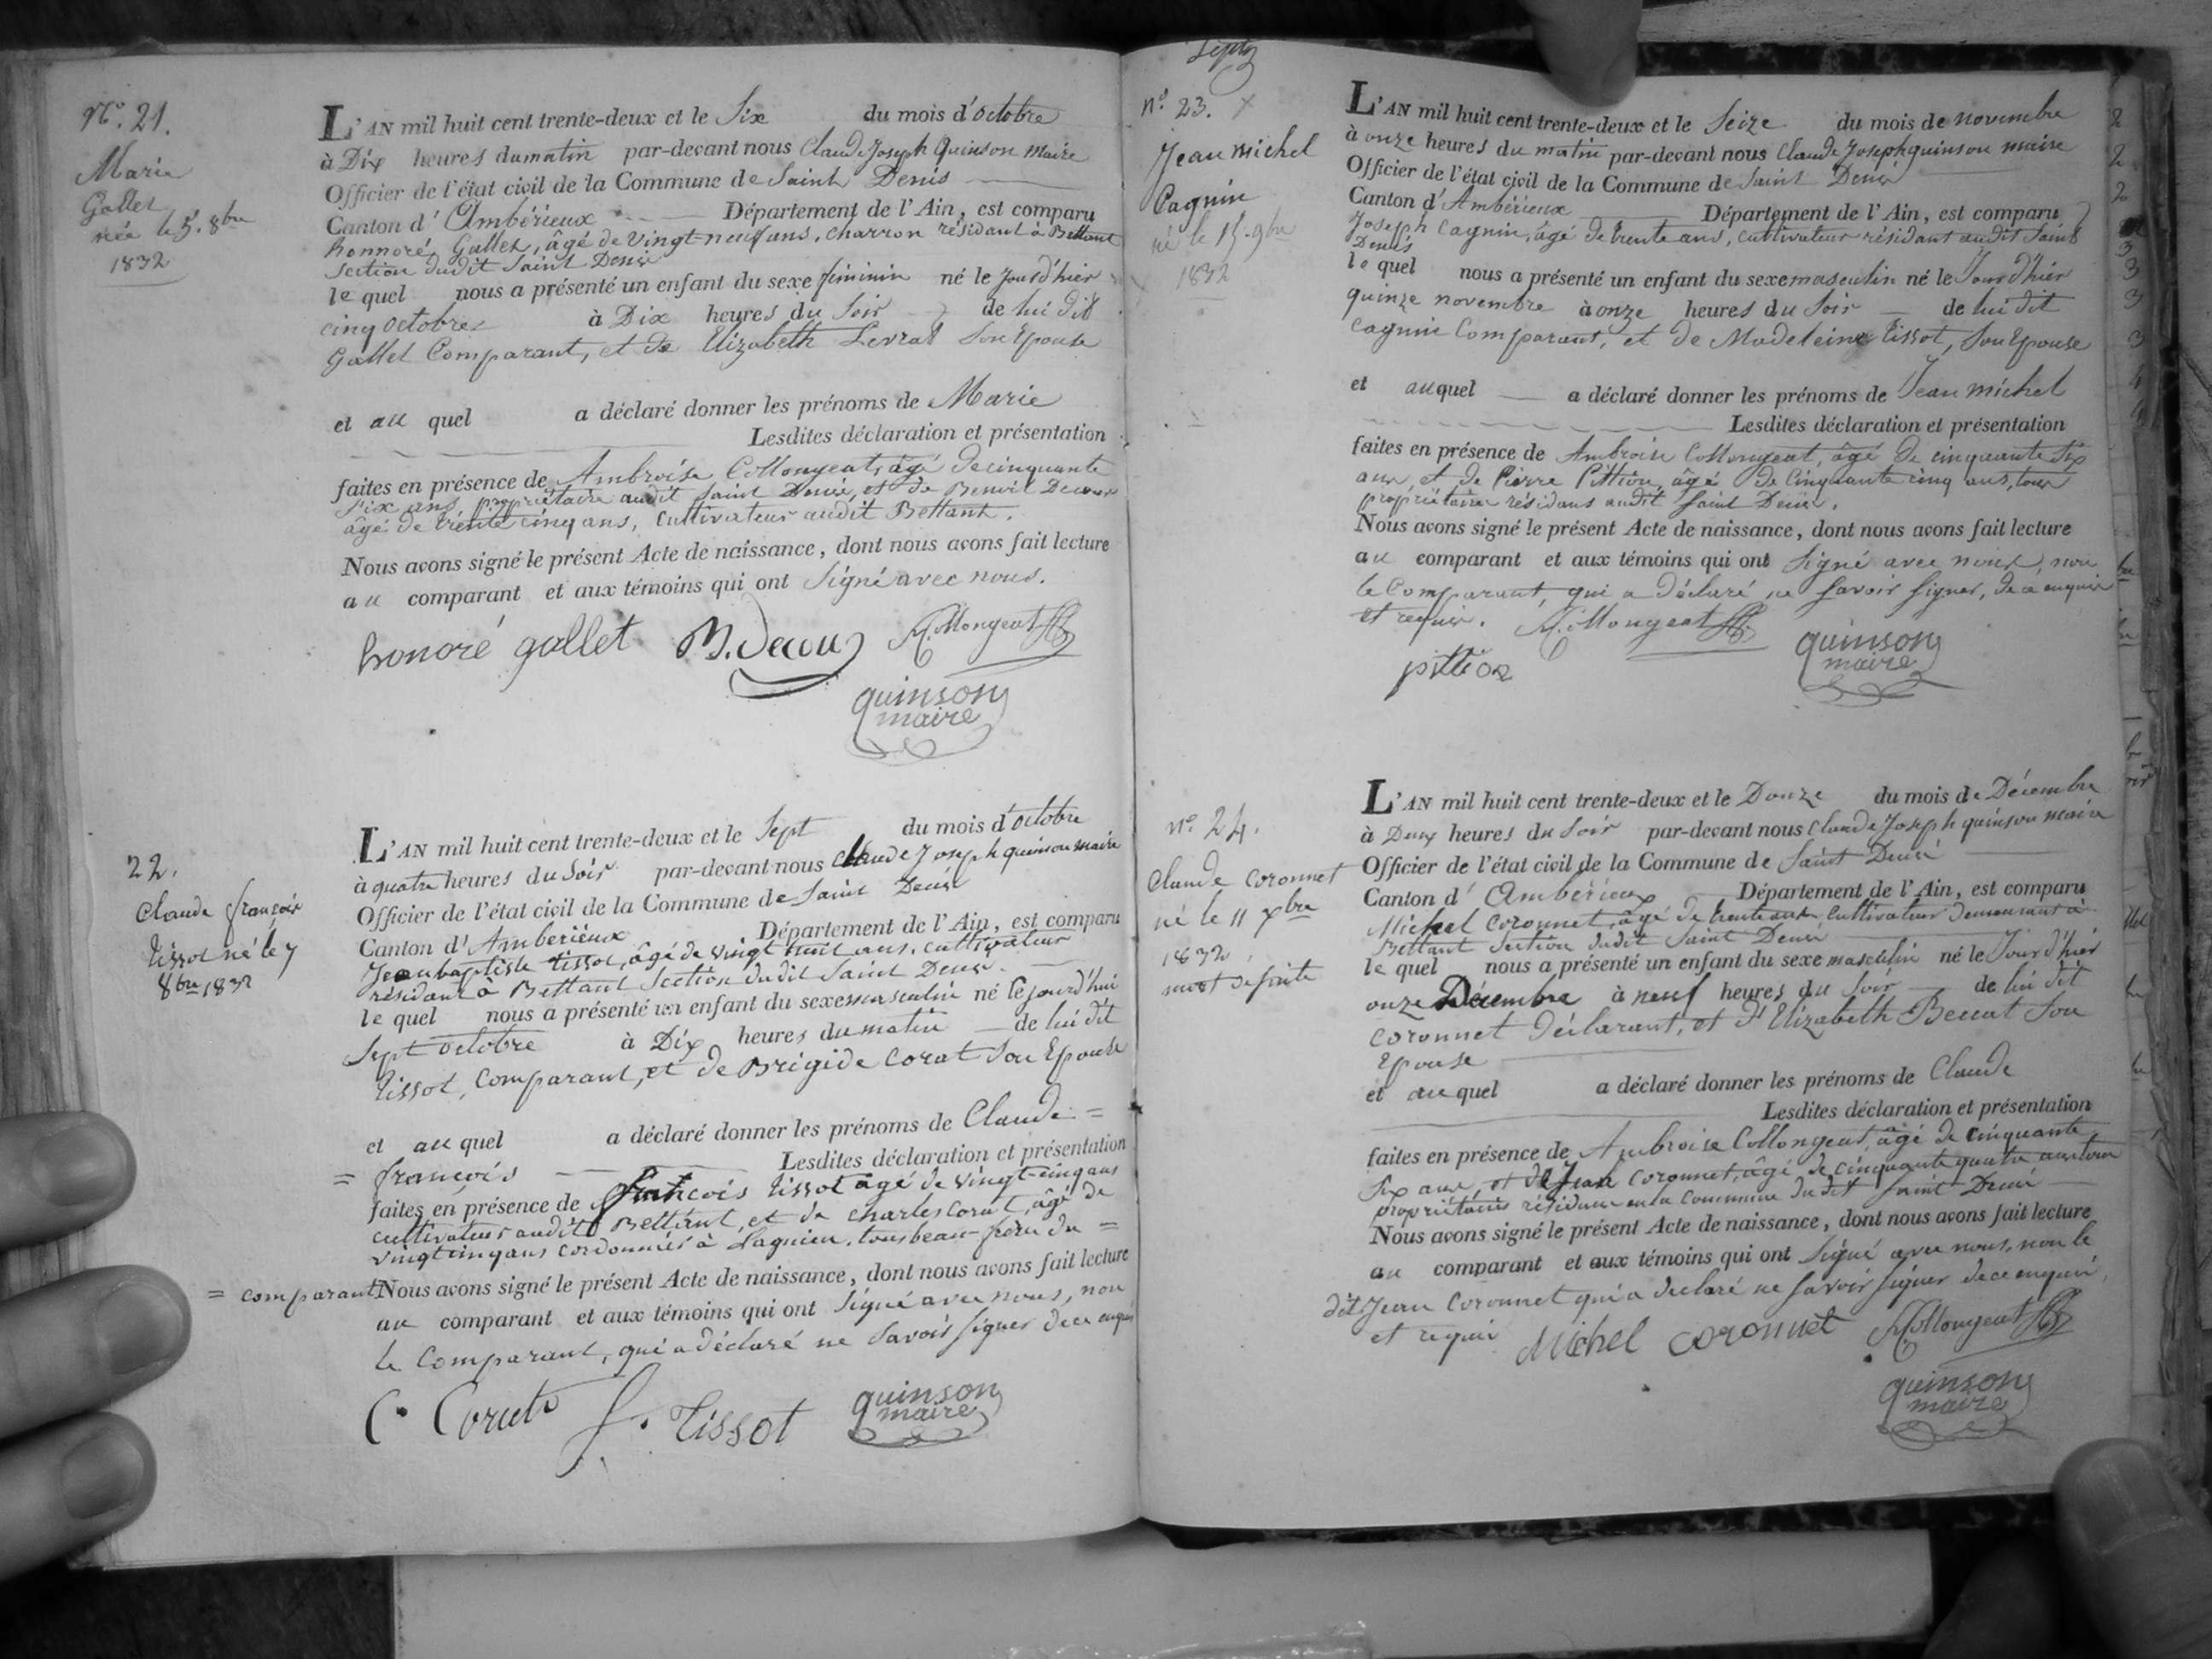 N.° 21.
Marie
Gallet
née le 5. 8bre
1832
L'AN mil huit cent trente-deux et le Six du mois d'octobre
à Dix heures du matin par-devant nous Claude Joseph Quinson Maire
Officier de l'état civil de la Commune de Saint Denis
Canton d'Ambérieux Département de l'Ain, est comparu
honnoré Gallet, âgé de vingt-neuf ans, charron résidant à Bettant
Section dudit Saint Denis
le quel nous a présenté un enfant du sexe féminin né le jourd'hier
cinq octobre à Dix heures du Soir de lui dit
Gallet Comparant, et de Elizabeth Levrat Son Epouse
et au quel a déclaré donner les prénoms de Marie
Lesdites déclaration et présentation
faites en présence de Ambroise Collongeat, âgé de cinquante
Six ans, propriétaire audit Saint Denis, et de Benoit Decour
âgé de trente cinq ans, Cultivateur audit Bettant.
Nous avons signé le présent Acte de naissance, dont nous avons fait lecture
au comparant et aux témoins qui ont Signé avec nous.
honoré gallet B. Decour A. Collongeat
quinson
maire
22.
Claude françois
tissot né le 7
8bre 1832
L'AN mil huit cent trente-deux et le Sept du mois d'octobre
à quatre heures du Soir par-devant nous Claude Joseph quinson maire
Officier de l'état civil de la Commune de Saint Denis
Canton d'Ambérieux Département de l'Ain, est comparu
Jean baptiste tissot, âgé de vingt huit ans, cultivateur
résidant à Bettant Section dudit Saint Denis.
le quel nous a présenté un enfant du sexe masculin né le jourd'hui
Sept octobre à Dix heures du matin de lui dit
tissot, comparant, et de Brigide Corat Son Epouse
et au quel a déclaré donner les prénoms de Claude =
= françois Lesdites déclaration et présentation
faites en présence de françois tissot âgé de vingt-cinq ans
cultivateur audit Bettant, et de charles Corat, âgé de
vingt cinq ans cordonnier à Lagnieu, tous beau-frère du =
= comparant Nous avons signé le présent Acte de naissance, dont nous avons fait lecture
au comparant et aux témoins qui ont Signé avec nous, non
le Comparant, qui a déclaré ne Savoir Signer de ce enquis
C. Corat f. Tissot quinson
maire
Septz
n.° 23. X
Jean michel
Cagnin
né le 15. 9bre
1832
L'AN mil huit cent trente-deux et le Seize du mois de novembre
à onze heures du matin par-devant nous Claude Joseph quinson maire
Officier de l'état civil de la Commune de Saint Denis
Canton d'Ambérieux Département de l'Ain, est comparu
Joseph Cagnin, âgé de trente ans, cultivateur résidant audit Saint
Denis
le quel nous a présenté un enfant du sexe masculin né le Jourd'hier
quinze novembre à onze heures du Soir de lui dit
Cagnin Comparant, et de Madeleine tissot, Son Epouse
et au quel a déclaré donner les prénoms de Jean michel
Lesdites déclaration et présentation
faites en présence de Ambroise Collongeat, âgé de cinquante Six
ans, et de Pierre Pittion, âgé de Cinquante cinq ans, tous
propriétaires résidans audit Saint Denis.
Nous avons signé le présent Acte de naissance, dont nous avons fait lecture
au comparant et aux témoins qui ont Signé avec nous, non
le Comparant, qui a déclaré ne Savoir Signer, de ce enquis
et requis. A. Collongeat quinson
pittion maire
n.° 24.
Claude Coronnet
né le 11 xbre
1832
L'AN mil huit cent trente-deux et le Douze du mois de Décembre
à Deux heures du Soir par-devant nous Claude Joseph quinson maire
Officier de l'état civil de la Commune de Saint Denis
Canton d'Ambérieux Département de l'Ain, est comparu
Michel Coronnet, âgé de trente ans Cultivateur demeurant à
Bettant Section dudit Saint Denis
le quel nous a présenté un enfant du sexe masculin né le Jourd'hier
onze Décembre à neuf heures du Soir de lui dit
Coronnet Déclarant, et d'Elizabeth Beccat Son
Epouse
et au quel a déclaré donner les prénoms de Claude
Lesdites déclaration et présentation
faites en présence de Ambroise Collongeat, âgé de Cinquante
Six ans, et de Jean Coronnet, âgé de cinquante quatre ans tous
propriétaires résidans en la Commune dudit Saint Denis
Nous avons signé le présent Acte de naissance, dont nous avons fait lecture
au comparant et aux témoins qui ont Signé avec nous, non le
dit Jean Coronnet qui a déclaré ne Savoir Signer de ce enquis,
et requis Michel Coronnet A. Collongeat
quinson
maire